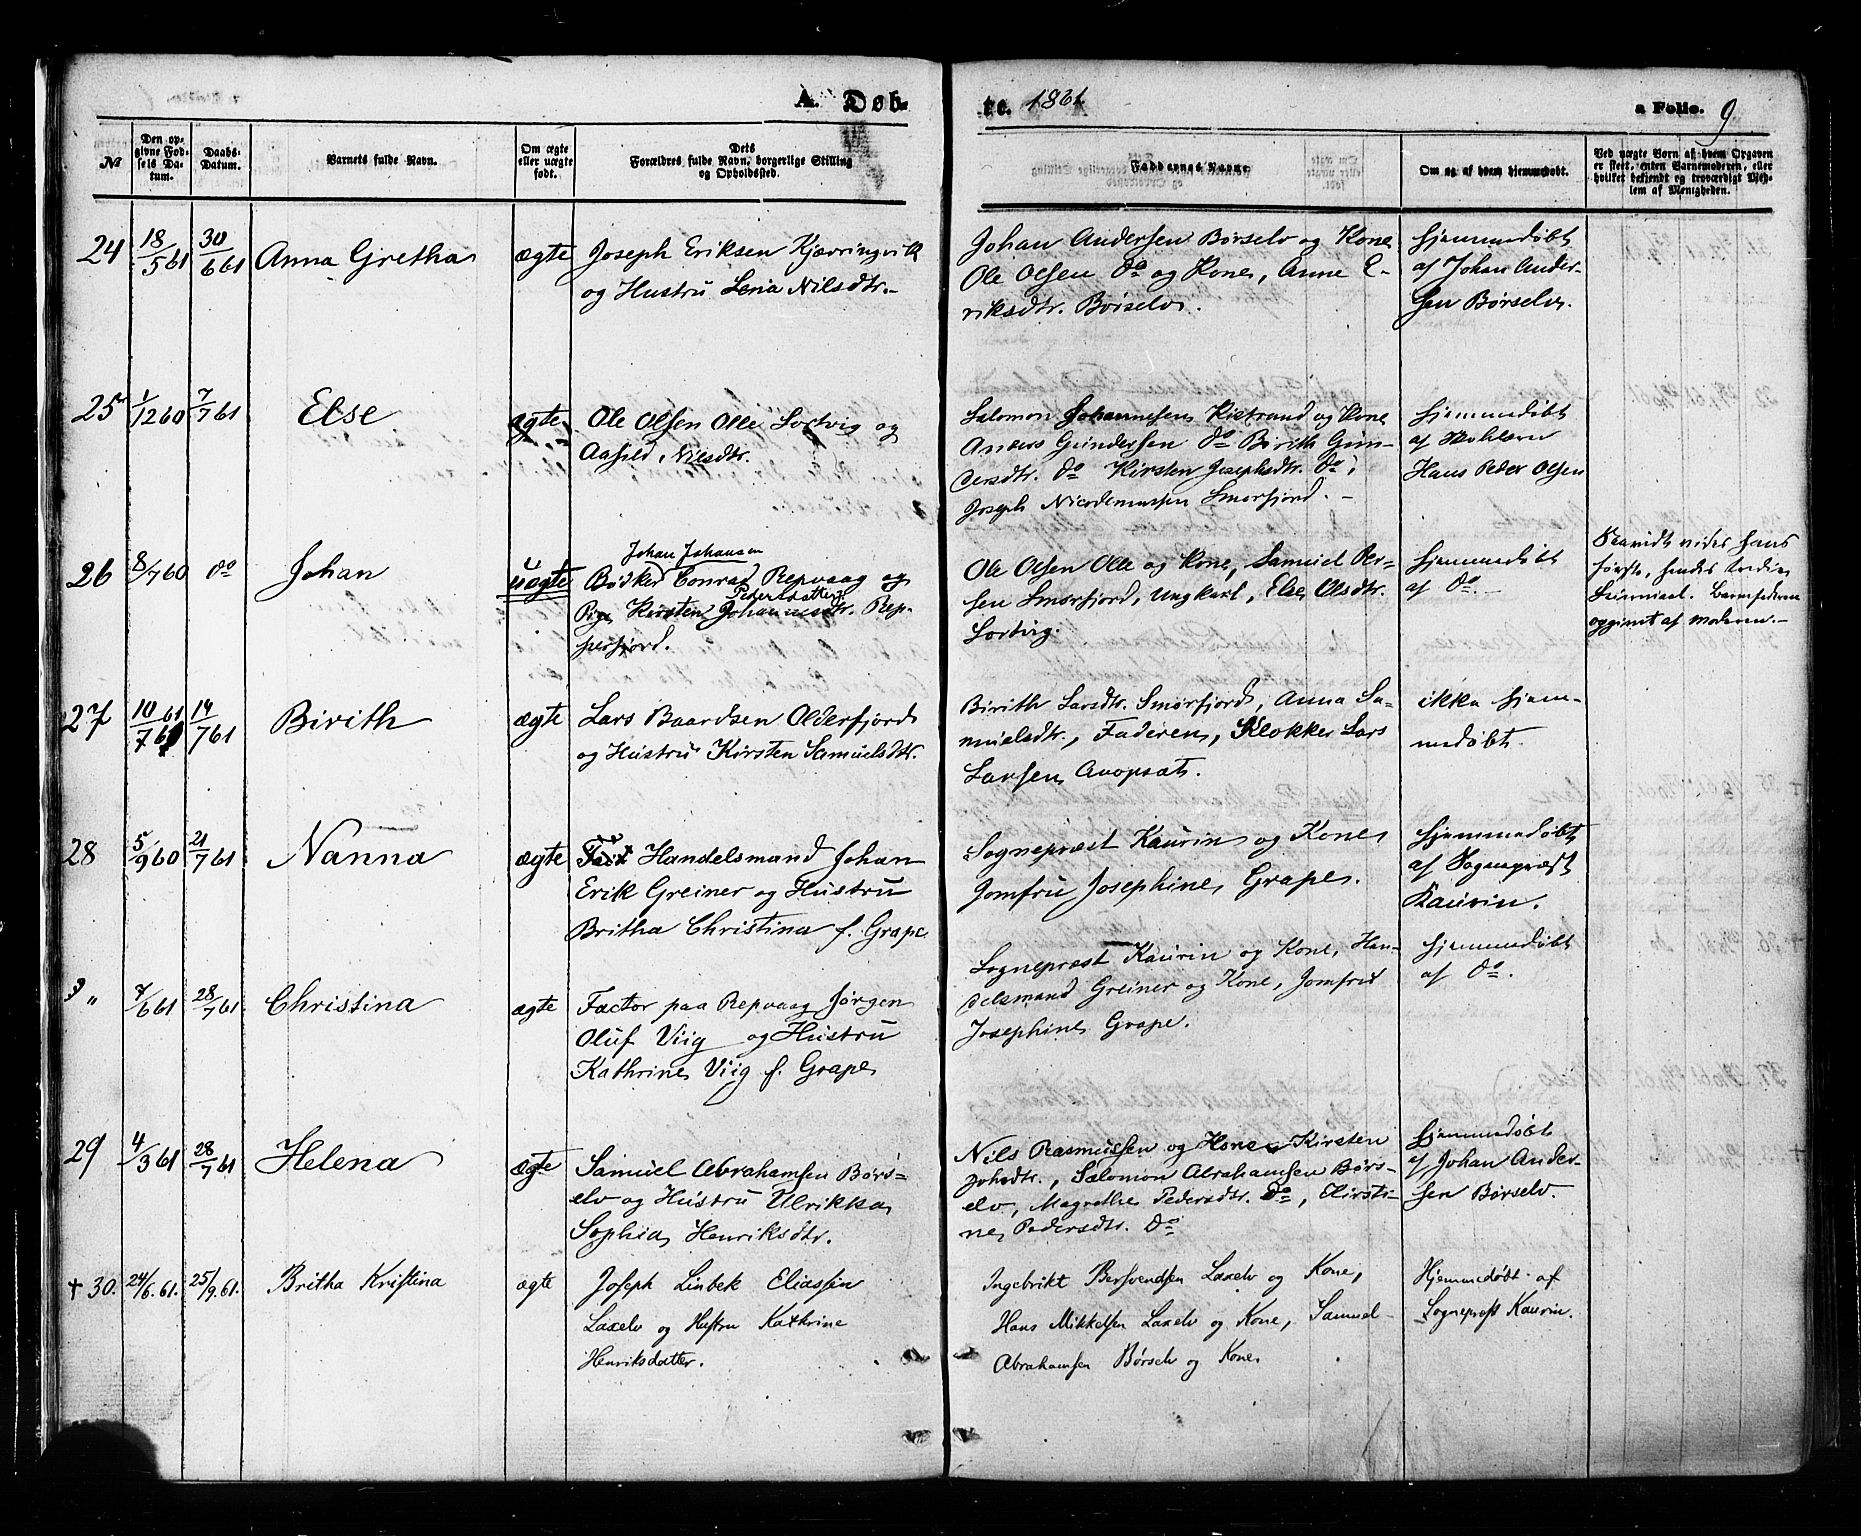 A. Døb-
te. 1861
a Folio. 9
№
Den op-
givne Fød-
sels Da-
tum.
Daabs-
Datum.
Barnets fulde Navn.
Om ægte
eller uægte
født.
Dets
Forældres fulde Navn, borgerlige Stilling
og Opholdssted.
Faddernes Navne.
Om og af hvem hjemmedøbt.
Ved uægte Børn af hvem Opgaven
er skeet, enten Barnemoderen, eller
hvilket bekjendt og troværdigt Med-
lem af Menigheden.
24 18/5 61 30/6 61 Anna Gretha ægte
Joseph Eriksen Kjærringvik
og Hustru Lena Nilsdtr.
Johan Andersen Børselv og Kone
Ole Olsen do og Kone, Anne E-
riksdtr. Børselv.
hjemmedøbt
af Johan Ander-
sen Børselv.
25 1/12 60 7/7 61 Else ægte
Ole Olsen Olle Lortvig og
Aashild Nilsdtr.
Salomon Johannesen Kistrand og Kone
Anders Gundersen do Birith Gun-
dersdtr. do Kirsten Josephsdtr. do,
Joseph Nicodemussen Smørfjord.
hjemmedøbt
af
Hans Peder Olsen
26 8/7 60 do Johan uægte
Johan Johansen
Bødker Conrad Repvaag og
Pedersdatter
Pige Kirsten Johannesdtr. Rep-
perfjord.
Ole Olsen Olle og Kone, Samuel Per-
sen Smørfjord, Ungkarl, Else Olsdtr.
Lortvig.
hjemmedøbt
af do.
Saavidt vides hans
første, hendes tredie
Leiermaal. Barnefaderen
opgivet af moderen.
27 10/7 61 14/7 61 Birith ægte
Lars Baardsen Olderfjord
og Hustru Kirsten Samuelsdtr.
Birith Larsdtr. Smørfjord, Anna Sa-
muelsdtr., Faderen, Klokker Lars
Larsen Avopsat.
ikke hjem-
medøbt.
28 5/9 60 21/7 61 Nanna ægte
Handelsmand Johan
Erik Greiner og Hustru
Britha Christina f. Grape
Sogneprest Kaurin og Kone
Jomfru Josephine Grape.
hjemmedøbt
af Sogneprest
Kaurin.
7/6 61 28/7 61 Christina ægte
Factor paa Repvaag Jørgen
Oluf Viig og Hustru
Kathrine Viig f. Grape
Sogneprest Kaurin og Kone, Han-
delsmand Greiner og Kone, Jomfru
Josephine Grape.
hjemmedøbt
af do.
29 4/3 61 28/7 61 Helena ægte
Samuel Abrahamsen Børs-
elv og Hustru Ulrikka
Sophia Henriksdtr.
Nils Rasmussen og Kone Kirsten
Johsdtr., Salomon Abrahamsen Børs-
elv, Magrethe Pedersdtr. do, Kirsti-
ne Pedersdtr. do
hjemmedøbt
af Johan Ander-
sen Børselv.
† 30. 24/6. 61. 25/9. 61. Britha Kristina ægte
Joseph Linbek Eliassen
Laxelv og Hustru Kathrine
Henriksdatter.
Ingebrikt Bersvendsen Laxelv og Kone,
Hans Mikkelsen Laxelv og Kone, Samuel
Abrahamsen Børselv og Kone
Hjemmedøbt af
Sogneprest Kaurin.